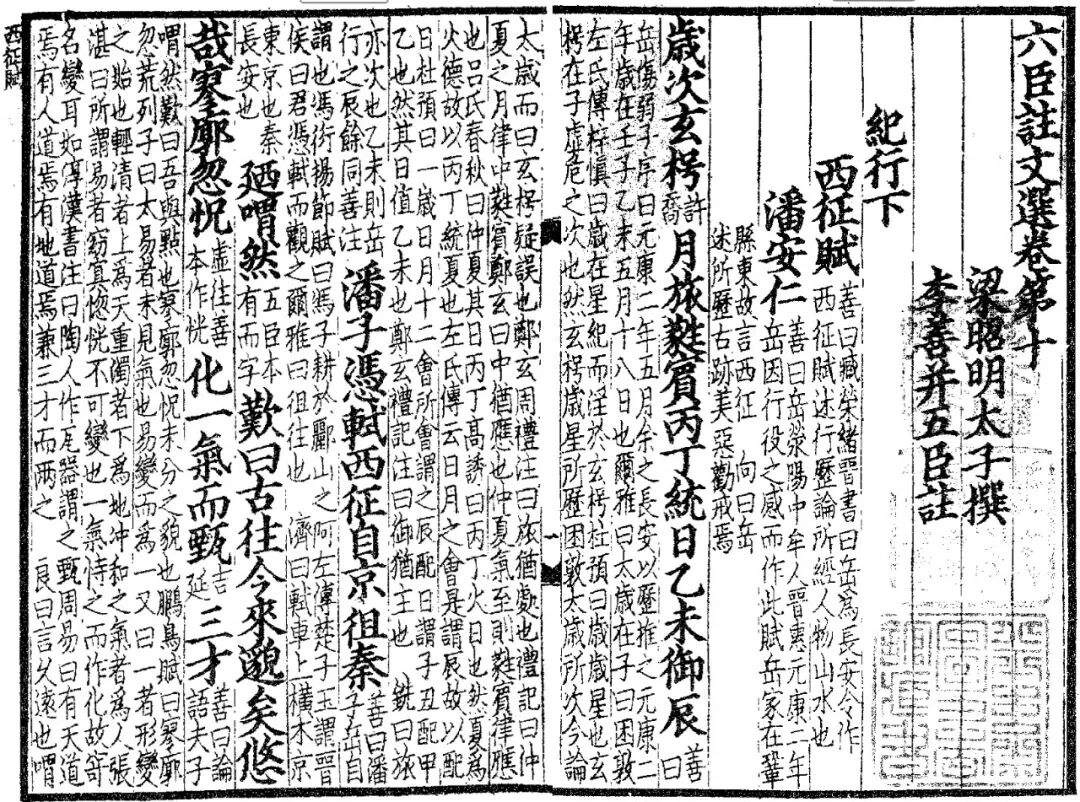 六臣註文選卷第十
梁昭明太子撰
李善并五臣註
紀行下
西征賦 善曰臧榮緒晉書曰岳為長安令作
西征賦述行歷論所經人物山水也
潘安仁 善曰岳滎陽中牟人晉惠元康二年
岳因行役之感而作此賦岳家在鞏
縣東故言西征 向曰岳
述所歷古跡美惡勸戒焉
歲次玄枵許喬月旅蕤賓丙丁統日乙未御辰善曰
岳傷弱子序曰元康二年五月余之長安以歷推之元康二
年歲在壬子乙未五月十八日也爾雅曰太歲在子曰困敦
左氏傳梓慎曰歲在星紀而淫於玄枵杜預曰歲歲星也玄
枵在子虛危之次也然玄枵歲星所歷困敦太歲所次今論
一
太歲而曰玄枵疑誤也鄭玄周禮注曰旅猶處也禮記曰仲
夏之月律中蕤賓鄭玄曰中猶應也仲夏氣至則蕤賓律應
也呂氏春秋曰仲夏其日丙丁高誘曰丙丁火日也然夏為
火德故以丙丁統夏也左氏傳云日月之會是謂辰故以配
日杜預曰一歲日月十二會所會謂之辰配日謂子丑配甲
乙也然其日值乙未也鄭玄禮記注曰御猶主也 銑曰旅
亦次也乙未則岳
行之辰餘同善注 潘子憑軾西征自京徂秦 善曰潘
子岳自
謂也馮衍揚節賦曰馮子耕於酈山之阿左傳楚子玉謂晉
侯曰君憑軾而觀之爾雅曰徂往也 濟曰軾車上橫木京
東京也秦
長安也 廼喟然 五臣本
有而字 歎曰古往今來邈矣悠
哉寥廓忽怳 虛往善
本作恍 化一氣而甄 吉
延 三才 善曰論
語夫子
喟然歎曰吾與點也寥廓忽怳未分之貌也鵩鳥賦曰寥廓
忽荒列子曰太易者未見氣也易變而為一又曰一者形變
之始也輕清者上為天重濁者下為地沖和之氣者為人張
湛曰所謂易者窈冥惚恍不可變也一氣恃之而作化故寄
名變耳如淳漢書注曰陶人作瓦器謂之甄周易曰有天道
焉有人道焉有地道焉兼三才而兩之 良曰言久遠也喟
西征賦